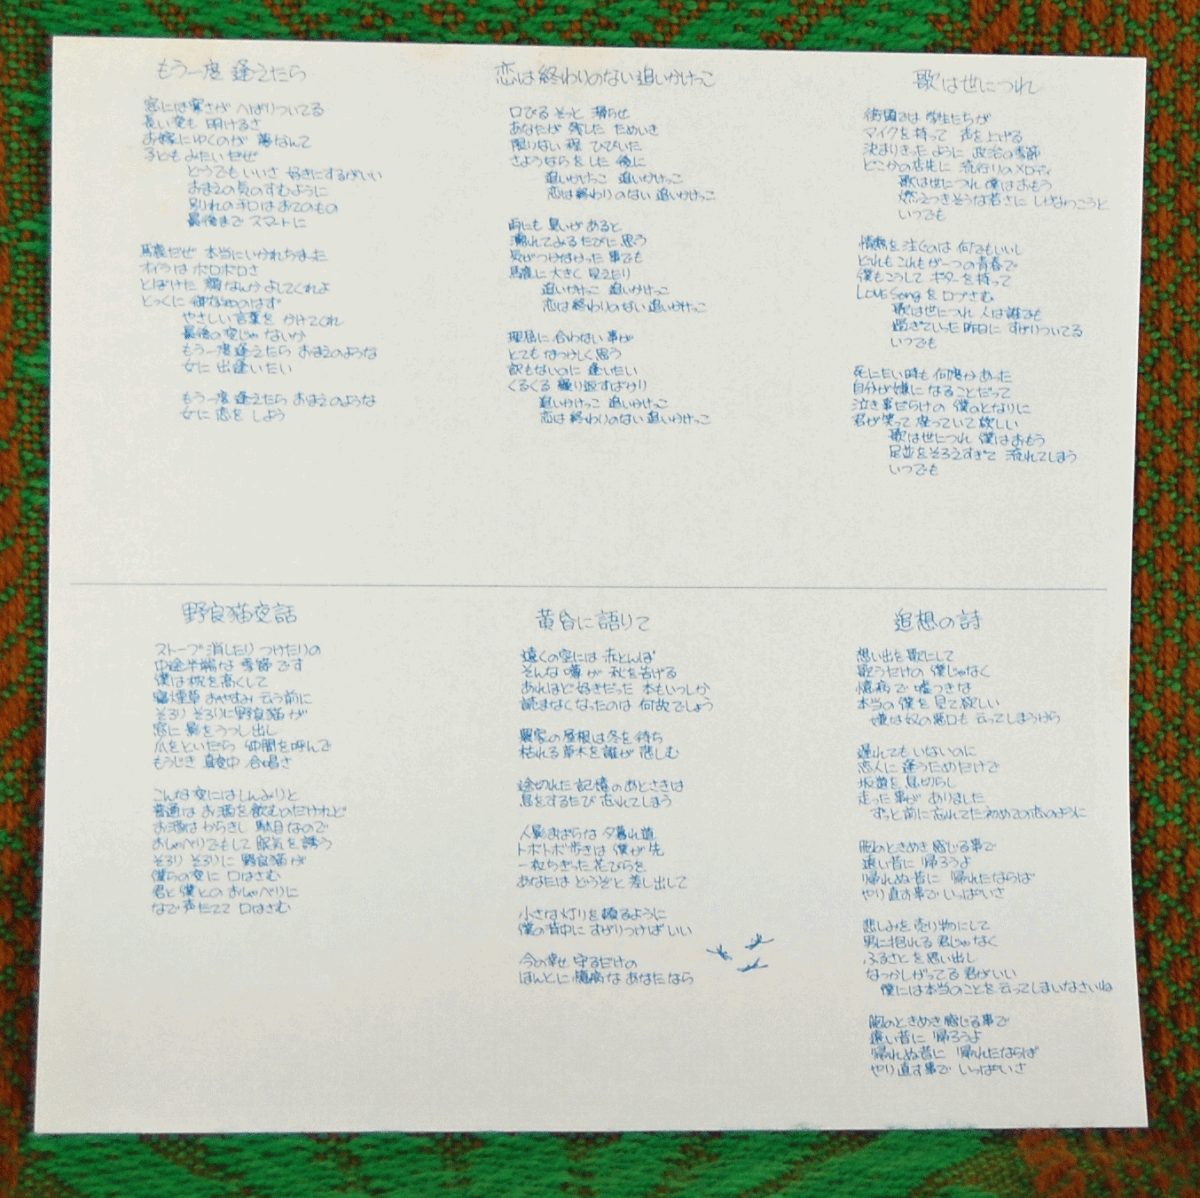 もう一度 逢えたら
窓には寒さが へばりついてる
長い夜も 明けるさ
お嫁にゆくのが 夢なんて
子どもみたいだぜ
どうでもいいさ 好きにするがいい
おまえの気のすむように
別れの手口はおてのもの
最後まで スマートに
馬鹿だぜ 本当にいかれちまった
オイラは ボロボロさ
とぼけた 顔なんか よしてくれよ
とっくに 御存知のはず
やさしい言葉を かけてくれ
最後の夜じゃ ないか
もう一度逢えたら おまえのような
女に 出逢いたい
もう一度 逢えたら おまえのような
女に 恋を しよう
恋は終わりのない追いかけっこ
口びる そっと 滑らせ
あなたが 残した ためいき
限りない程 ひびいた
さようならをした 後に
追いかけっこ 追いかけっこ
恋は終わりのない 追いかけっこ
雨にも 臭いが あると
濡れてみるたびに 思う
気がつかなかった 事でも
馬鹿に 大きく 見えたり
追いかけっこ 追いかけっこ
恋は終わりのない追いかけっこ
理屈に 合わない 事が
とても なつかしく思う
訳もないのに 逢いたい
くるくる 繰り返すばかり
追いかけっこ 追いかけっこ
恋は終わりのない 追いかけっこ
歌は世につれ
街頭では 学生たちが
マイクを持って 声を上げる
決まりきったように 政治の季節
どこかの店先に 流行りのメロディ
歌は世につれ 僕はおもう
燃えつきそうな若さに しがみつこうと
いつでも
情熱を 注ぐのは 何でもいいし
どれも これもが一つの青春で
僕もこうして ギターを持って
Love Songを 口ずさむ
歌は世につれ 人は誰でも
過ぎていった昨日に すがりついてる
いつでも
死にたい時も 何度かあった
自分が嫌に なることだって
泣き事だらけの 僕のとなりに
君が笑って 座っていて欲しい
歌は世につれ 僕はおもう
足並をそろえすぎて 流れてしまう
いつでも
野良猫夜話
ストーブ 消したり つけたりの
中途半端な 季節です
僕は枕を高くして
寝煙草 おやすみ 云う前に
そろり そろりに野良猫が
窓に 影をうつし出し
爪をといだら 仲間を呼んで
もうじき 真夜中 合唱さ
こんな夜には しんみりと
普通は お酒を飲むのだけれど
お酒は からきし 駄目なので
おしゃべりでもして 眠気を誘う
そろり そろりに 野良猫が
僕らの窓に 口はさむ
君と僕との おしゃべりに
なで声たてて 口はさむ
黄昏に語りて
遠くの空には 赤とんぼ
そんな 噂が 秋を告げる
あれほど好きだった 本もいつしか
読まなくなったのは 何故でしょう
農家の屋根は冬を待ち
枯れる 草木を誰が 悲しむ
途切れた 記憶のあとさきは
息をするたび 忘れてしまう
人影まばらな 夕暮れ道
トボトボ歩きは 僕が先
一枚ちぎった 花びらを
あなたは どうぞと 差し出して
小さな灯りを 撮るように
僕の背中に すがりつけばいい
今の幸せ 守るだけの
ほんとに 臆病な あなたなら
追想の詩
想い出を 歌にして
歌うだけの 僕じゃなく
臆病で 嘘つきな
本当の 僕を 見て欲しい
嫌な奴の悪口も 云ってしまうから
遅れてもいないのに
恋人に 逢うためだけで
坂道を 息切らし
走った 事が ありました
ずっと前に 忘れてた初めての恋のように
胸のときめき 感じる事で
遠い昔に 帰ろうよ
帰れぬ昔に 帰れたならば
やり直す事で いっぱいさ
悲しみを 売り物にして
男に 抱れる 君じゃなく
ふるさと を 思い出し
なつかしがってる 君がいい
僕には本当のことを 云ってしまいなさいね
胸のときめき 感じる事で
遠い昔に 帰ろうよ
帰れぬ昔に 帰れたならば
やり直す事で いっぱいさ